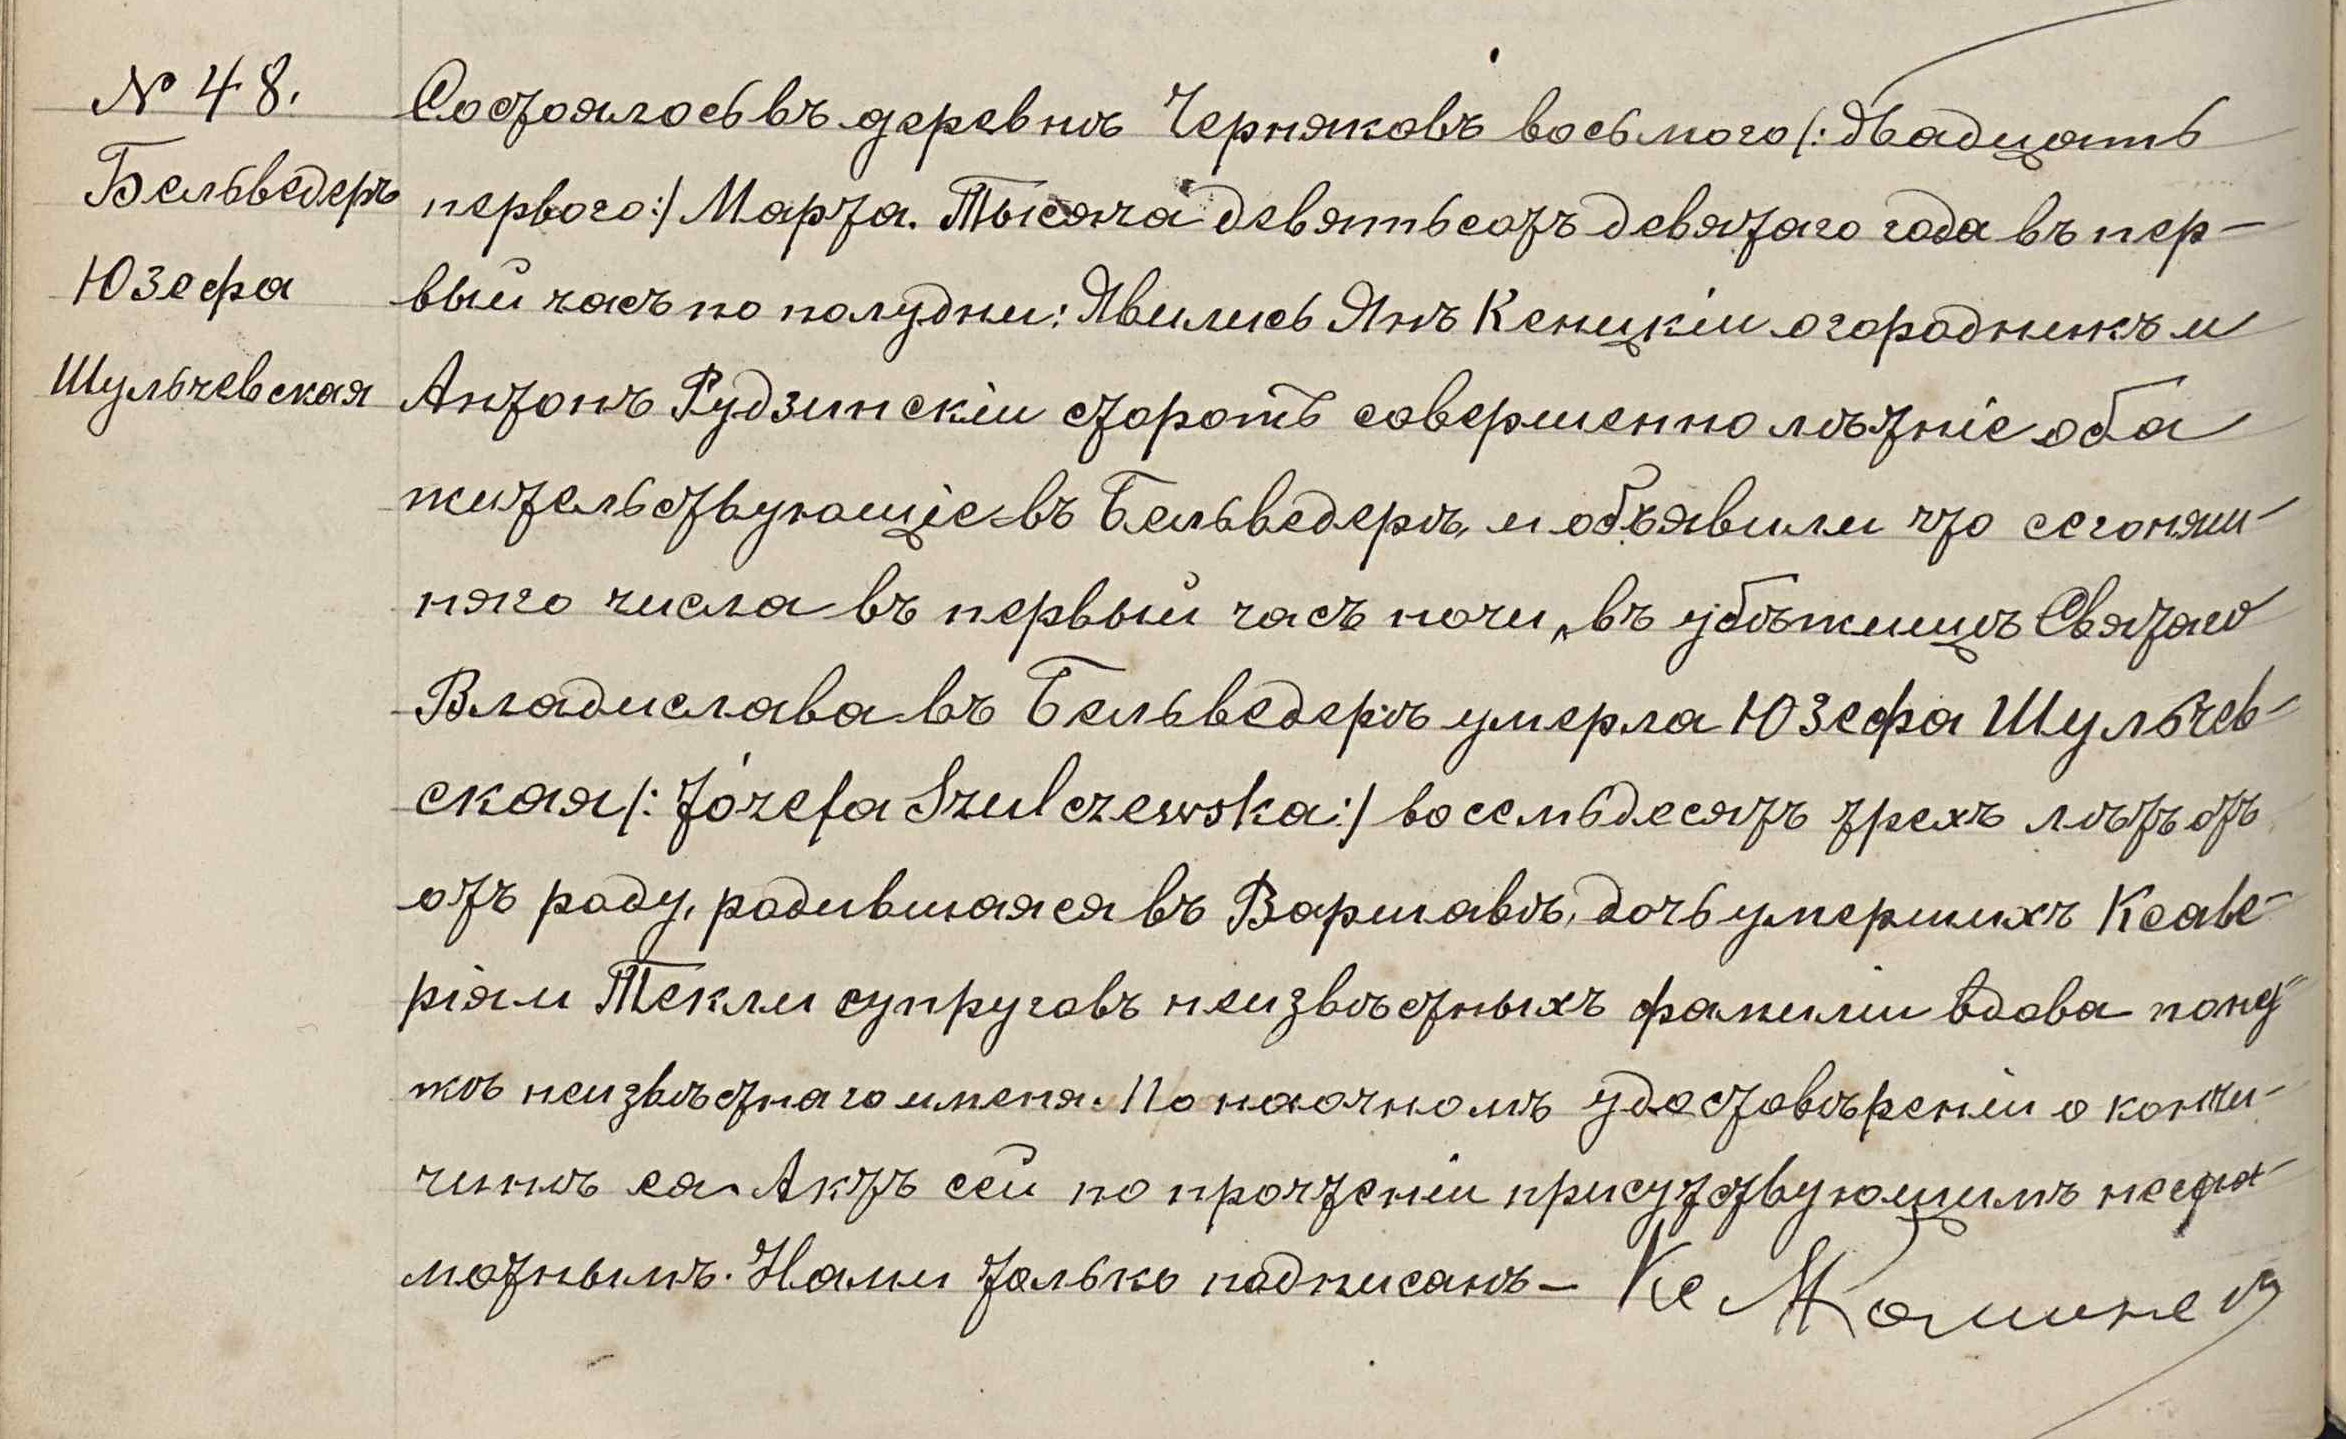 № 48.
Бельведеръ
Юзефа
Шульчевская
Состоялось въ деревнѣ Черняковъ восьмого /: двадцать
первого :/ Марта. Тысяча девятьсотъ девятаго года въ пер-
вый часъ по полудни: Явились Янъ Кеницкiи огородникъ и
Антонъ Рудзинскiи сторожъ совершеннолѣтнiе оба
жительствующiе въ Бельведерѣ, и объявили что сегоняш-
няго числа въ первый часъ ночи, въ убѣжищѣ Святаго
Владислава въ Бельведерѣ умерла Юзефа Шульчев-
ская /: Józefa Szulczewska :/ восемьдесятъ трехъ лѣтъ отъ
отъ роду, родившаяся въ Варшавѣ, дочь умершихъ Ксаве-
рiя и Текли супруговъ неизвѣстныхъ фамилiи вдова по му-
жѣ неизвѣстнаго имени. По наочномъ удостовѣренiи о кончи-
чинѣ ея. Актъ сей по прочтенiи присутствующимъ негра-
мотнымъ. Нами только подписанъ –